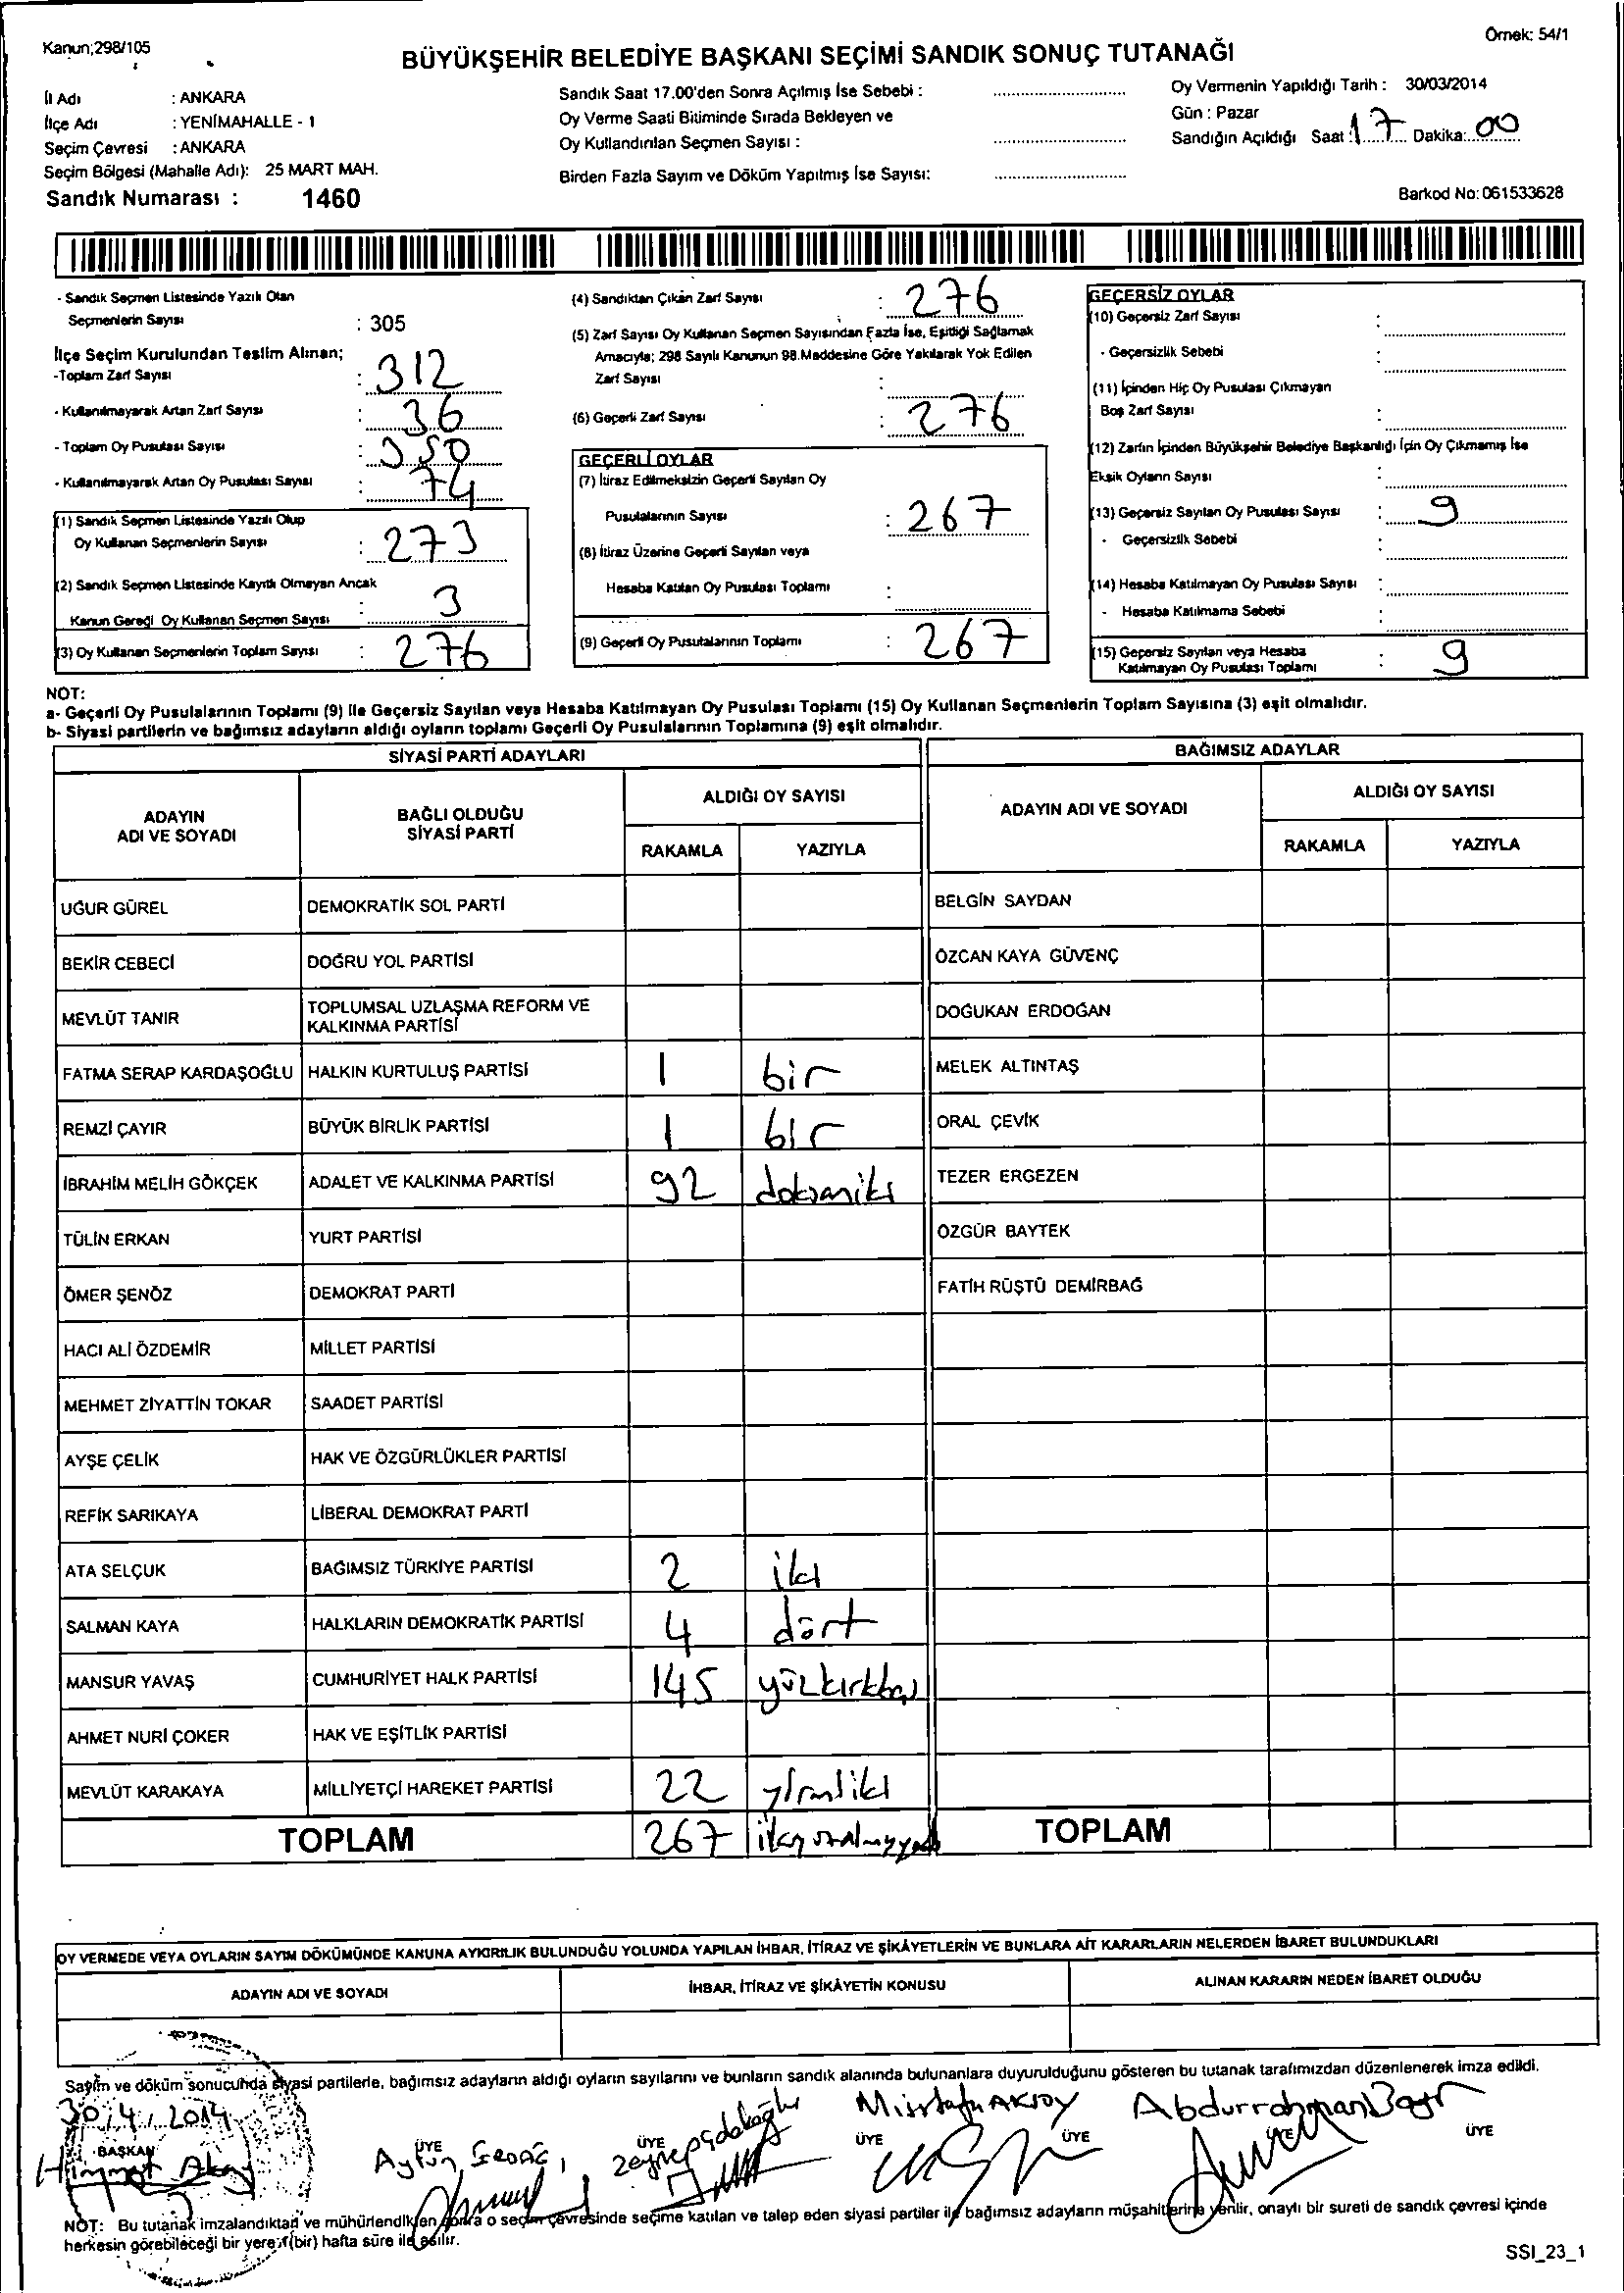 Kanun;298/105
Örnek: 54/1
BÜYÜKŞEHİR BELEDİYE BAŞKANI SEÇİMİ SANDIK SONUÇ TUTANAĞI
İl Adı : ANKARA
İlçe Adı : YENİMAHALLE - 1
Seçim Çevresi : ANKARA
Seçim Bölgesi (Mahalle Adı): 25 MART MAH.
Sandık Numarası : 1460
Sandık Saat 17.00'den Sonra Açılmış İse Sebebi :
Oy Verme Saati Bitiminde Sırada Bekleyen ve
Oy Kullandırılan Seçmen Sayısı :
Birden Fazla Sayım ve Döküm Yapılmış İse Sayısı:
Oy Vermenin Yapıldığı Tarih : 30/03/2014
Gün : Pazar
Sandığın Açıldığı Saat : 17 Dakika: 00
Barkod No: 061533628
- Sandık Seçmen Listesinde Yazılı Olan
Seçmenlerin Sayısı : 305
İlçe Seçim Kurulundan Teslim Alınan;
-Toplam Zarf Sayısı : 312
- Kullanılmayarak Artan Zarf Sayısı : 36
- Toplam Oy Pusulası Sayısı : 350
- Kullanılmayarak Artan Oy Pusulası Sayısı : 74
(1) Sandık Seçmen Listesinde Yazılı Olup
Oy Kullanan Seçmenlerin Sayısı : 273
(2) Sandık Seçmen Listesinde Kayıtlı Olmayan Ancak
Kanun Gereği Oy Kullanan Seçmen Sayısı : 3
(3) Oy Kullanan Seçmenlerin Toplam Sayısı : 276
(4) Sandıktan Çıkan Zarf Sayısı : 276
(5) Zarf Sayısı Oy Kullanan Seçmen Sayısından Fazla İse, Eşitliği Sağlamak
Amacıyla; 298 Sayılı Kanunun 98.Maddesine Göre Yakılarak Yok Edilen
Zarf Sayısı :
(6) Geçerli Zarf Sayısı : 276
GEÇERLİ OYLAR
(7) İtiraz Edilmeksizin Geçerli Sayılan Oy
Pusulalarının Sayısı : 267
(8) İtiraz Üzerine Geçerli Sayılan veya
Hesaba Katılan Oy Pusulası Toplamı :
(9) Geçerli Oy Pusulalarının Toplamı : 267
GEÇERSİZ OYLAR
(10) Geçersiz Zarf Sayısı :
- Geçersizlik Sebebi :
(11) İçinden Hiç Oy Pusulası Çıkmayan
Boş Zarf Sayısı :
(12) Zarfın İçinden Büyükşehir Belediye Başkanlığı İçin Oy Çıkmamış İse
Eksik Oyların Sayısı :
(13) Geçersiz Sayılan Oy Pusulası Sayısı : 9
- Geçersizlik Sebebi :
(14) Hesaba Katılmayan Oy Pusulası Sayısı :
- Hesaba Katılmama Sebebi :
(15) Geçersiz Sayılan veya Hesaba
Katılmayan Oy Pusulası Toplamı : 9
NOT:
a- Geçerli Oy Pusulalarının Toplamı (9) İle Geçersiz Sayılan veya Hesaba Katılmayan Oy Pusulası Toplamı (15) Oy Kullanan Seçmenlerin Toplam Sayısına (3) eşit olmalıdır.
b- Siyasi partilerin ve bağımsız adayların aldığı oyların toplamı Geçerli Oy Pusulalarının Toplamına (9) eşit olmalıdır.
SİYASİ PARTİ ADAYLARI
BAĞIMSIZ ADAYLAR
ADAYIN
ADI VE SOYADI
BAĞLI OLDUĞU
SİYASİ PARTİ
ALDIĞI OY SAYISI
RAKAMLA YAZIYLA
ADAYIN ADI VE SOYADI
ALDIĞI OY SAYISI
RAKAMLA YAZIYLA
UĞUR GÜREL DEMOKRATİK SOL PARTİ BELGİN SAYDAN
BEKİR CEBECİ DOĞRU YOL PARTİSİ ÖZCAN KAYA GÜVENÇ
MEVLÜT TANIR TOPLUMSAL UZLAŞMA REFORM VE
KALKINMA PARTİSİ DOĞUKAN ERDOĞAN
FATMA SERAP KARDAŞOĞLU HALKIN KURTULUŞ PARTİSİ 1 bir MELEK ALTINTAŞ
REMZİ ÇAYIR BÜYÜK BİRLİK PARTİSİ 1 bir ORAL ÇEVİK
İBRAHİM MELİH GÖKÇEK ADALET VE KALKINMA PARTİSİ 92 doksaniki TEZER ERGEZEN
TÜLİN ERKAN YURT PARTİSİ ÖZGÜR BAYTEK
ÖMER ŞENÖZ DEMOKRAT PARTİ FATİH RÜŞTÜ DEMİRBAĞ
HACI ALİ ÖZDEMİR MİLLET PARTİSİ
MEHMET ZİYATTİN TOKAR SAADET PARTİSİ
AYŞE ÇELİK HAK VE ÖZGÜRLÜKLER PARTİSİ
REFİK SARIKAYA LİBERAL DEMOKRAT PARTİ
ATA SELÇUK BAĞIMSIZ TÜRKİYE PARTİSİ 2 iki
SALMAN KAYA HALKLARIN DEMOKRATİK PARTİSİ 4 dört
MANSUR YAVAŞ CUMHURİYET HALK PARTİSİ 145 yüzkırkbeş
AHMET NURİ ÇOKER HAK VE EŞİTLİK PARTİSİ
MEVLÜT KARAKAYA MİLLİYETÇİ HAREKET PARTİSİ 22 yirmiiki
TOPLAM 267 TOPLAM
OY VERMEDE VEYA OYLARIN SAYIM DÖKÜMÜNDE KANUNA AYKIRILIK BULUNDUĞU YOLUNDA YAPILAN İHBAR, İTİRAZ VE ŞİKÂYETLERİN VE BUNLARA AİT KARARLARIN NELERDEN İBARET BULUNDUKLARI
ADAYIN ADI VE SOYADI İHBAR, İTİRAZ VE ŞİKÂYETİN KONUSU ALINAN KARARIN NEDEN İBARET OLDUĞU
Sayım ve döküm sonucunda siyasi partilerle, bağımsız adayların aldığı oyların sayılarını ve bunların sandık alanında bulunanlara duyurulduğunu gösteren bu tutanak tarafımızdan düzenlenerek imza edildi.
30/4/2014
BAŞKAN ÜYE ÜYE ÜYE ÜYE ÜYE ÜYE
Himmet Akay Aytun Zeynep Mustafa AKSOY Abdurrahman
NOT: Bu tutanak imzalandıktan ve mühürlendikten sonra o seçim çevresinde seçime katılan ve talep eden siyasi partiler ile bağımsız adayların müşahitlerine verilir, onaylı bir sureti de sandık çevresi içinde
herkesin görebileceği bir yere 1(bir) hafta süre ile asılır.
SSI_23_1